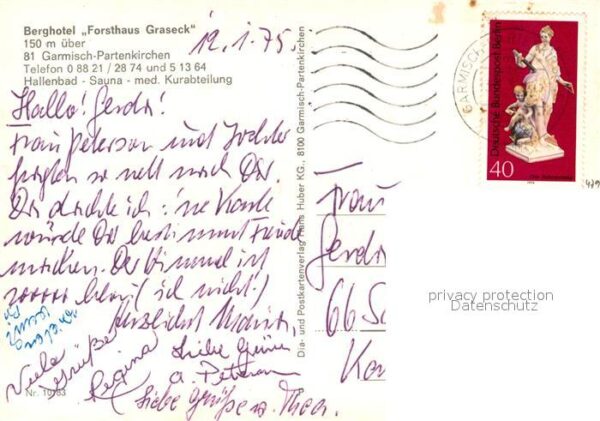 Berghotel „Forsthaus Graseck"
150 m über
81 Garmisch-Partenkirchen
Telefon 0 88 21 / 28 74 und 5 13 64
Hallenbad - Sauna - med. Kurabteilung
12.1.75.
Hallo! Gerda!
Frau Peterson und Tochter
fragten so nett nach Dir.
Da dachte ich: 'ne Karte
würde Dir bestimmt Freude
machen. Der Himmel ist
sooooo blau (ich nicht!)
Herzlichst
Viele Grüße
Regina
Liebe Grüße
Liebe Grüße
Nr. 10783
Dia- und Postkartenverlag Hans Huber KG., 8100 Garmisch-Partenkirchen
GARMISCH
Deutsche Bundespost Berlin
40
479
Frau
Gerda
66 Sa
Ka
privacy protection
Datenschutz